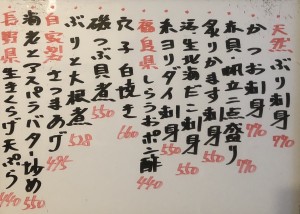 天然ぶり刺身 770
かつお刺身 770
赤貝・帆立二点盛り 770
炙りかます刺身 550
活生北海だこ刺身 550
糸ヨリダイ刺身 550
福島県しらうおポン酢 440
穴子白焼き 660
磯つぶ貝煮 550
ぶりと大根煮 528
自家製さつまあげ 495
海老とアスパラバター炒め 550
長野県生きくらげ天ぷら 440